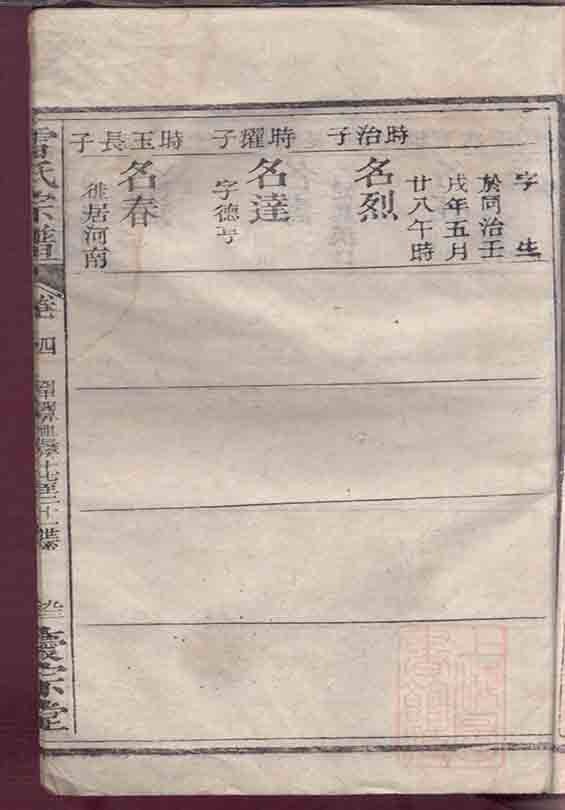 字　生
於同治壬
戌年五月
廿八午時
時治子
名烈
時耀子
名達
字德亏
時玉長子
名春
徙居河南
雷氏宗譜
卷四
十七至二十一世